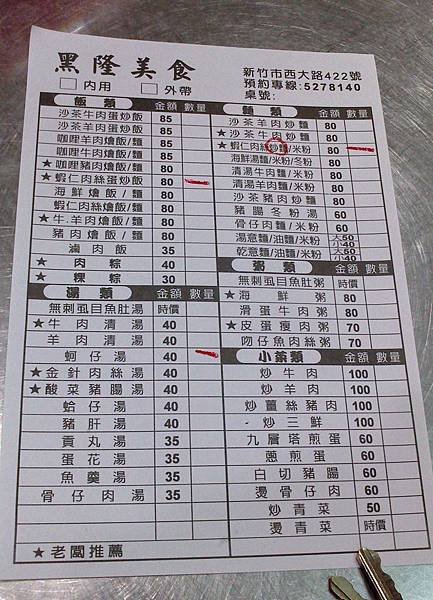 黑隆美食
內用 外帶
新竹市西大路422號
預約專線:5278140
桌號:
飯類 金額 數量
沙茶牛肉蛋炒飯 85
沙茶羊肉蛋炒飯 85
咖哩牛肉燴飯/麵 85
咖哩羊肉燴飯/麵 85
★咖哩豬肉燴飯/麵 80
★蝦仁肉絲蛋炒飯 80
海鮮燴飯/麵 80
蝦仁肉絲燴飯/麵 80
★牛.羊肉燴飯/麵 80
豬肉燴飯/麵 80
滷肉飯 35
★肉粽 40
★粿粽 30
湯類 金額 數量
無刺虱目魚肚湯 時價
★牛肉清湯 40
羊肉清湯 40
蚵仔湯 40
★金針肉絲湯 40
★酸菜豬腸湯 40
蛤仔湯 40
豬肝湯 40
貢丸湯 35
蛋花湯 35
魚羹湯 35
骨仔肉湯 35
★老闆推薦
麵類 金額 數量
沙茶羊肉炒麵 80
★沙茶牛肉炒麵 80
★蝦仁肉絲炒麵/米粉 80
海鮮湯麵/米粉/冬粉 80
清湯牛肉麵/米粉 80
清湯羊肉麵/米粉 80
沙茶豬肉炒麵 80
豬腸冬粉湯 60
骨仔肉麵/米粉 60
湯意麵/油麵/米粉 大50 小40
乾意麵/油麵/米粉 大50 小40
粥類 金額 數量
★海鮮粥 80
滑蛋牛肉粥 80
★皮蛋瘦肉粥 70
吻仔魚肉絲粥 70
小菜類 金額 數量
炒牛肉 100
炒羊肉 100
炒薑絲豬肉 100
炒三鮮 100
九層塔煎蛋 60
蔥煎蛋 60
白切豬腸 60
燙骨仔肉 60
炒青菜 50
燙青菜 時價